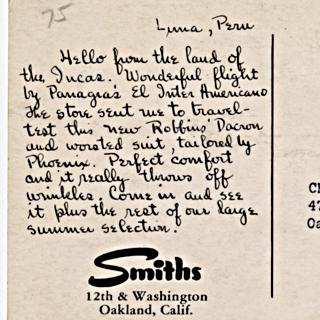 75
Lima, Peru
Hello from the land of
the Incas. Wonderful flight
by Panagra's El Inter Americano
The store sent me to travel-
test this new Robbins' Dacron
and worsted suit, tailored by
Phoenix. Perfect comfort
and it really throws off
wrinkles. Come in and see
it plus the rest of our large
summer selection.
Smiths
12th & Washington
Oakland, Calif.
Cl
47
Oa